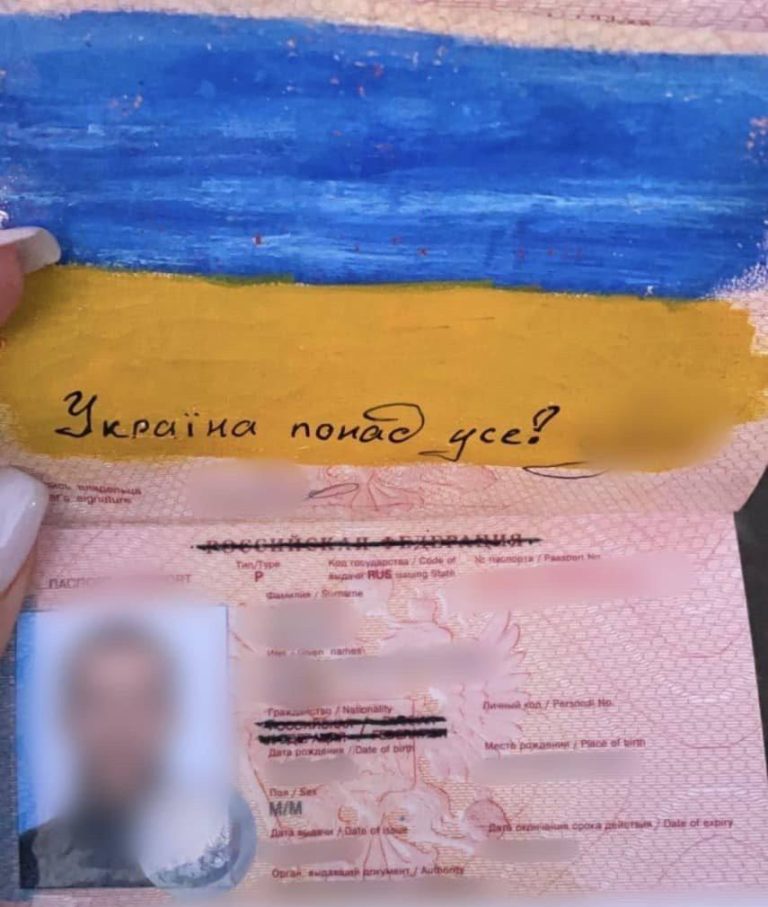 Україна понад усе?
пись владельца
er's signature
РОССИЙСКАЯ ФЕДЕРАЦИЯ
Тип/Type
P
Код государства / Code of
выдачи RUS issuing State
№ паспорта / Passport No.
Фамилия / Surname
Имя / Given names
Гражданство / Nationality
Личный код / Personal No.
Дата рождения / Date of birth
Место рождения / Place of birth
Пол / Sex
М/M
Дата выдачи / Date of issue
Дата окончания срока действия / Date of expiry
Орган, выдавший документ / Authority